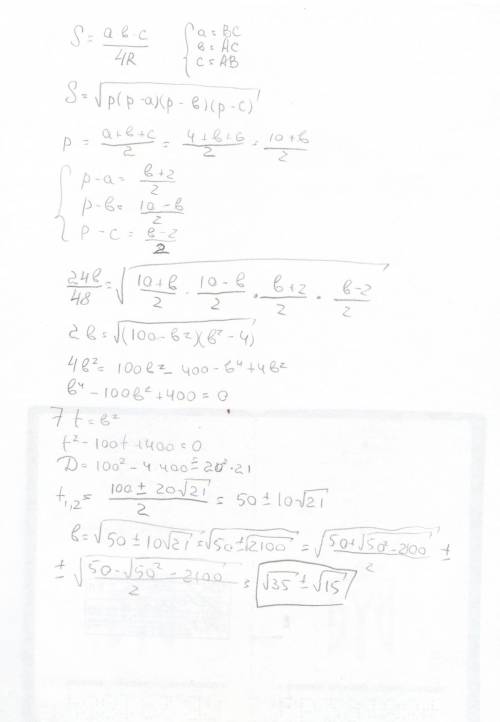 S = aв·c / 4R { a = BC
в = AC
c = AB
S = √(p(p-a)(p-в)(p-c))
p = (a+в+c)/2 = (4+в+6)/2 = (10+в)/2
{ p-a = (в+2)/2
p-в = (10-в)/2
p-c = (в-2)/2
24в/48 = √((10+в)/2 · (10-в)/2 · (в+2)/2 · (в-2)/2)
2в = √((100-в²)(в²-4))
4в² = 100в² - 400 - в⁴ + 4в²
в⁴ - 100в² + 400 = 0
7 t = в²
t² - 100t + 400 = 0
D = 100² - 4·400 = 20²·21
t₁,₂ = (100 ± 20√21)/2 = 50 ± 10√21
в = √(50 ± 10√21) = √(50 ± √2100) = √((50+√(50²-2100))/2) ±
± √((50-√(50²-2100))/2) = √35 ± √15